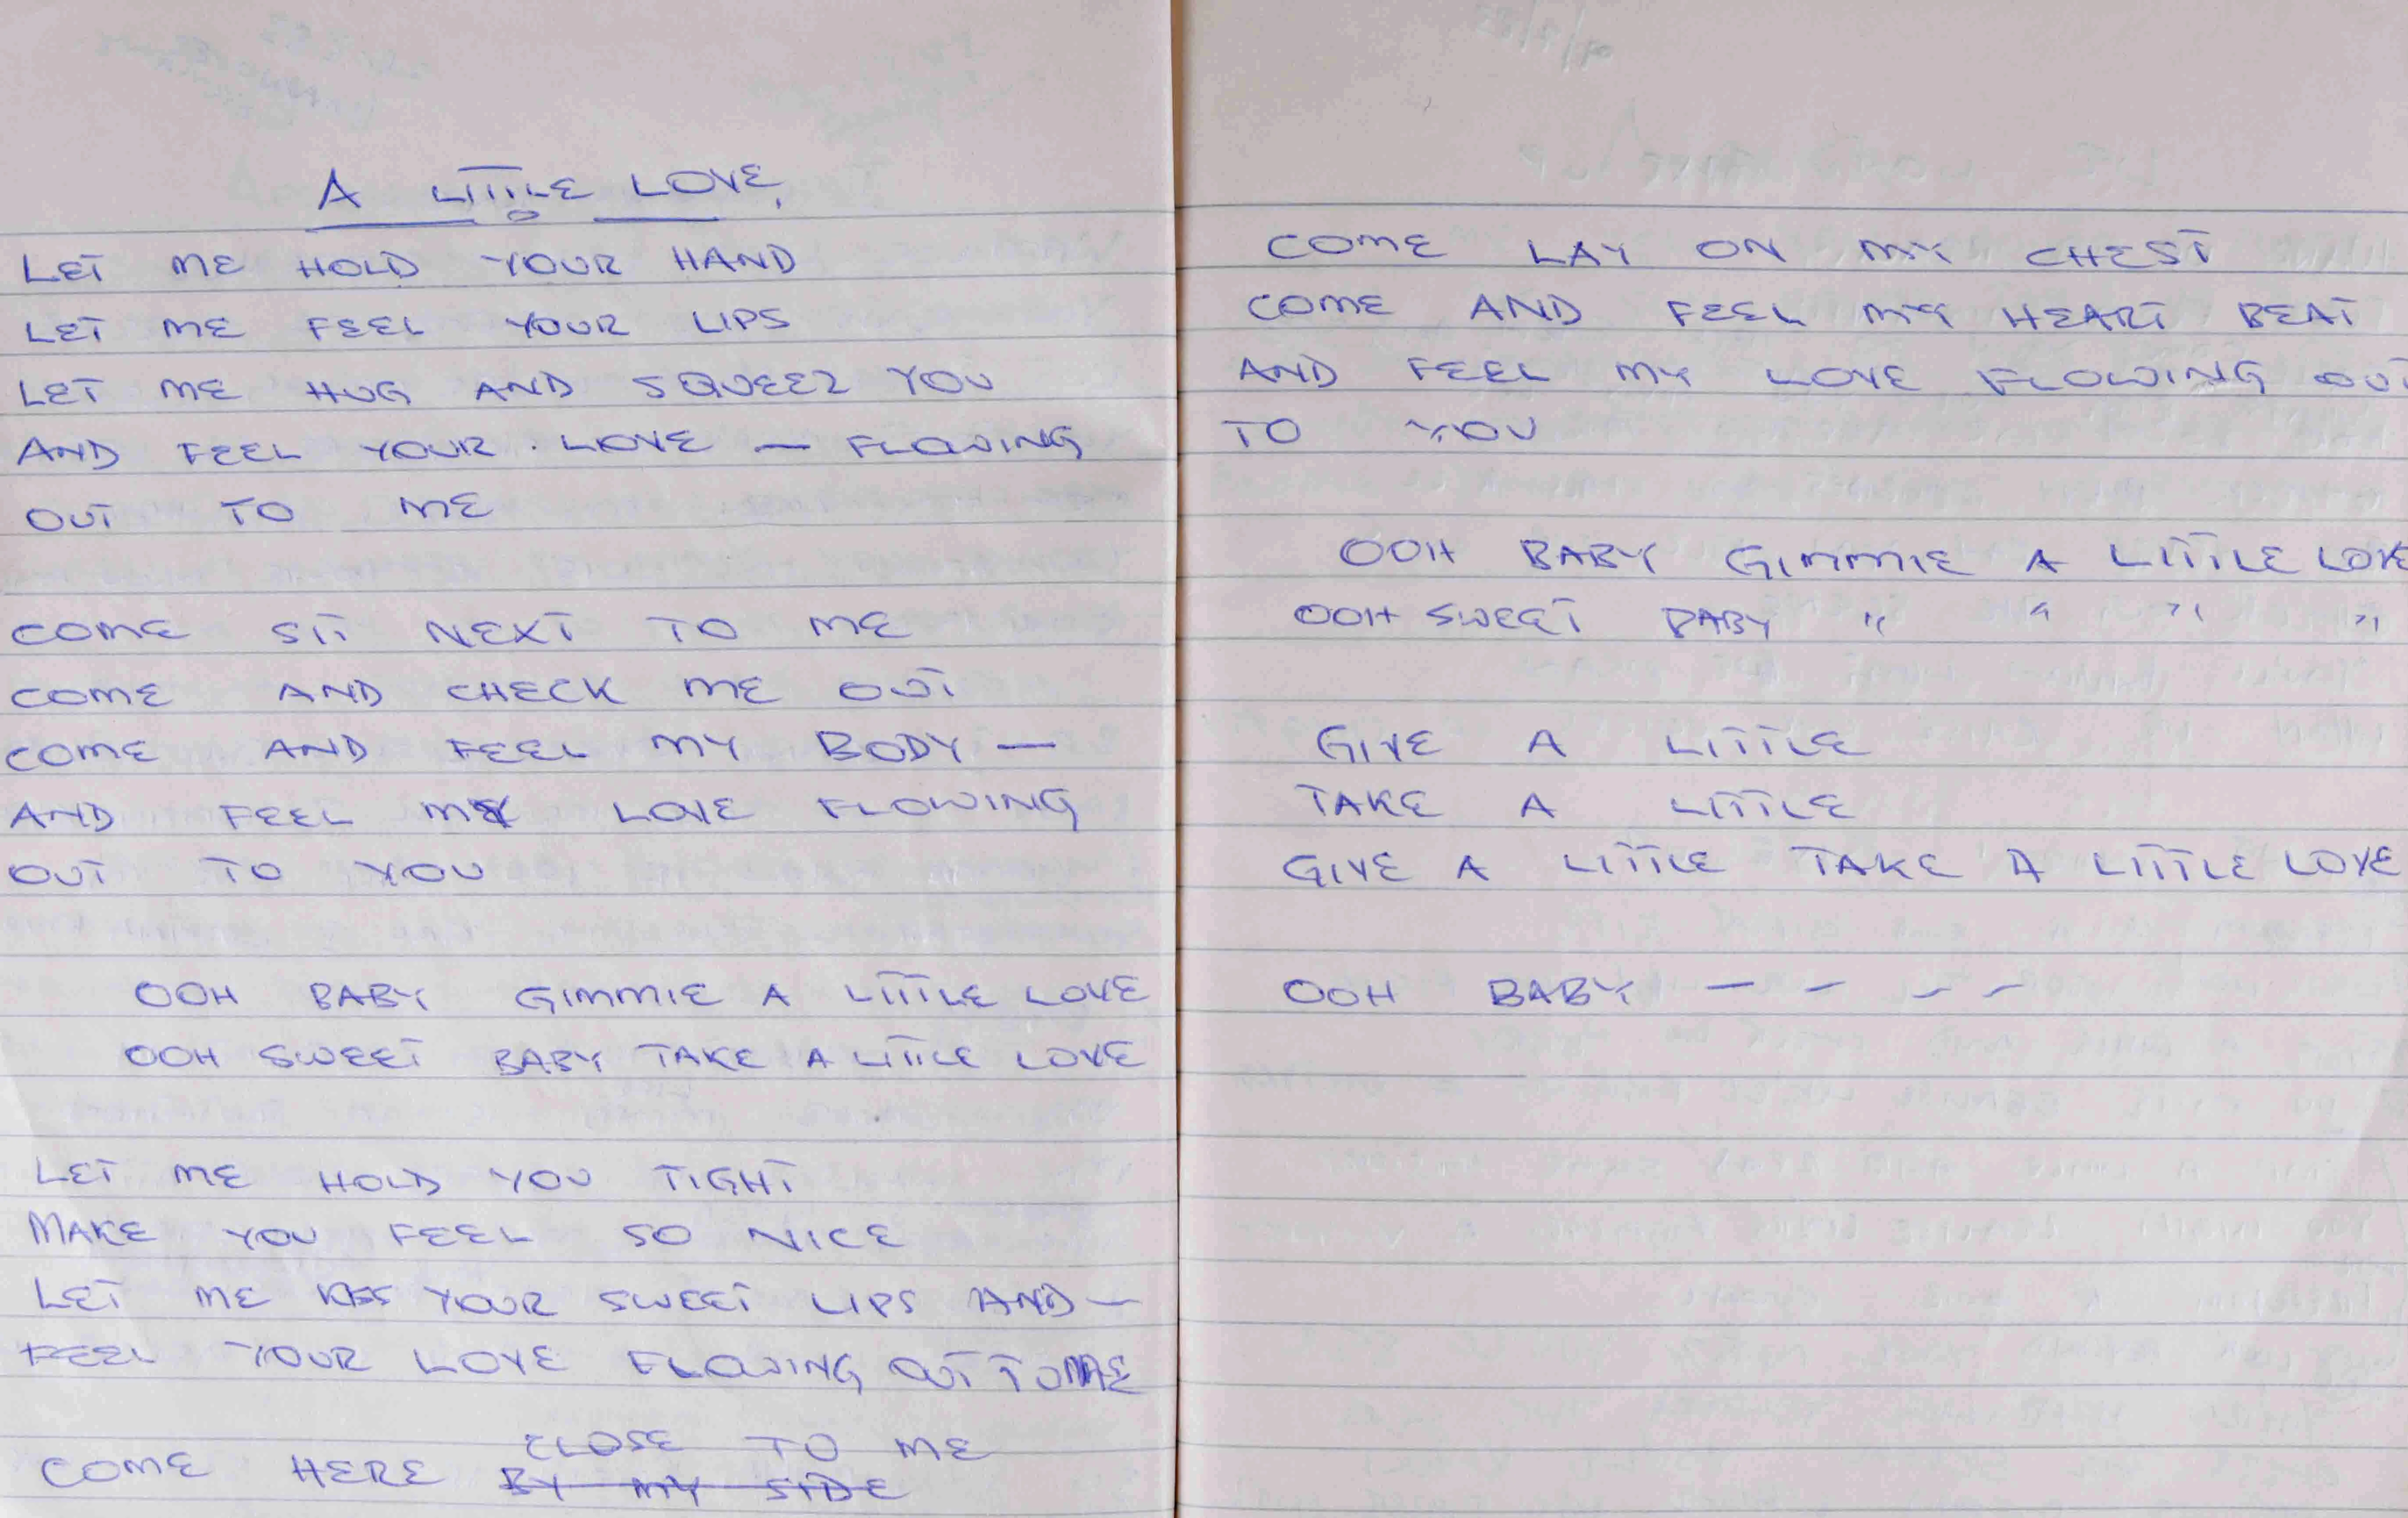 A LITTLE LOVE,
LET ME HOLD YOUR HAND
LET ME FEEL YOUR LIPS
LET ME HUG AND SQUEEZ YOU
AND FEEL YOUR LOVE — FLOWING
OUT TO ME
COME SIT NEXT TO ME
COME AND CHECK ME OUT
COME AND FEEL MY BODY —
AND FEEL MY LOVE FLOWING
OUT TO YOU
OOH BABY GIMMIE A LITTLE LOVE
OOH SWEET BABY TAKE A LITTLE LOVE
LET ME HOLD YOU TIGHT
MAKE YOU FEEL SO NICE
LET ME KISS YOUR SWEET LIPS AND —
FEEL YOUR LOVE FLOWING OUT TO ME
CLOSE TO ME
COME HERE BY MY SIDE
COME LAY ON MY CHEST
COME AND FEEL MY HEART BEAT
AND FEEL MY LOVE FLOWING OUT
TO YOU
OOH BABY GIMMIE A LITTLE LOVE
OOH SWEET BABY " " " "
GIVE A LITTLE
TAKE A LITTLE
GIVE A LITTLE TAKE A LITTLE LOVE
OOH BABY — — — —